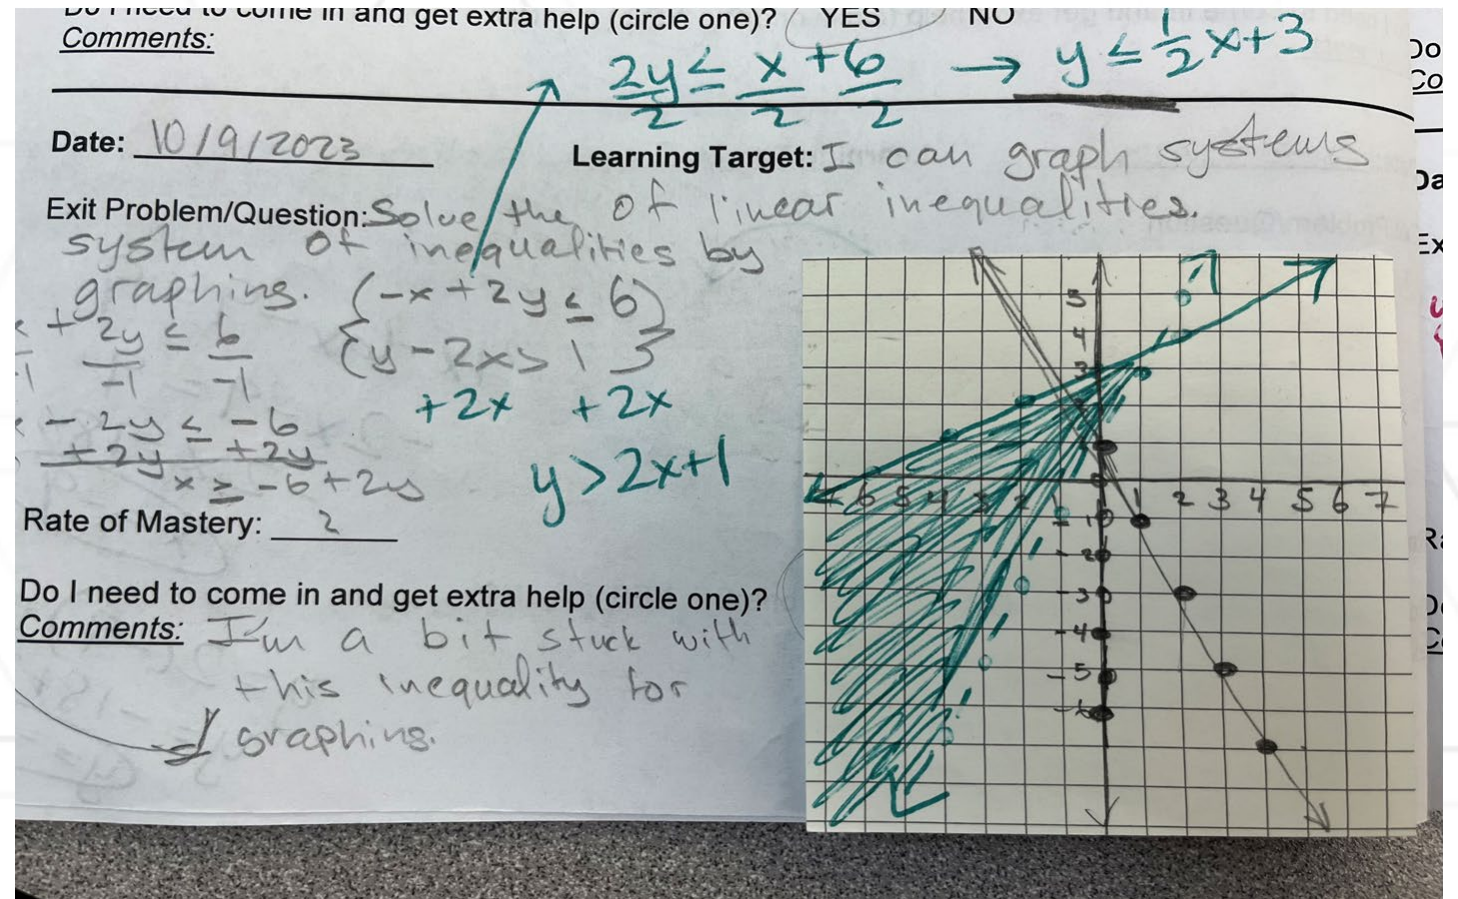 Do I need to come in and get extra help (circle one)? YES NO
Comments:
2y ≤ x + 6 → y ≤ 1/2 x + 3
2 2 2
Date: 10/9/2023
Learning Target: I can graph systems
of linear inequalities.
Exit Problem/Question: Solve the
system of inequalities by
graphing. {-x + 2y ≤ 6}
{y - 2x > 1}
+ 2y ≤ 6
-1 -1 -1
- 2y ≤ -6
+ 2y +2y
x ≥ -6 + 2y
+2x +2x
y > 2x+1
Rate of Mastery: 2
Do I need to come in and get extra help (circle one)?
Comments: I'm a bit stuck with
this inequality for
graphing.
5
4
3
2
1
0
-6 5 4 3 2 1 2 3 4 5 6 7
-1
-2
-3
-4
-5
-6
Do
Co
Da
Ex